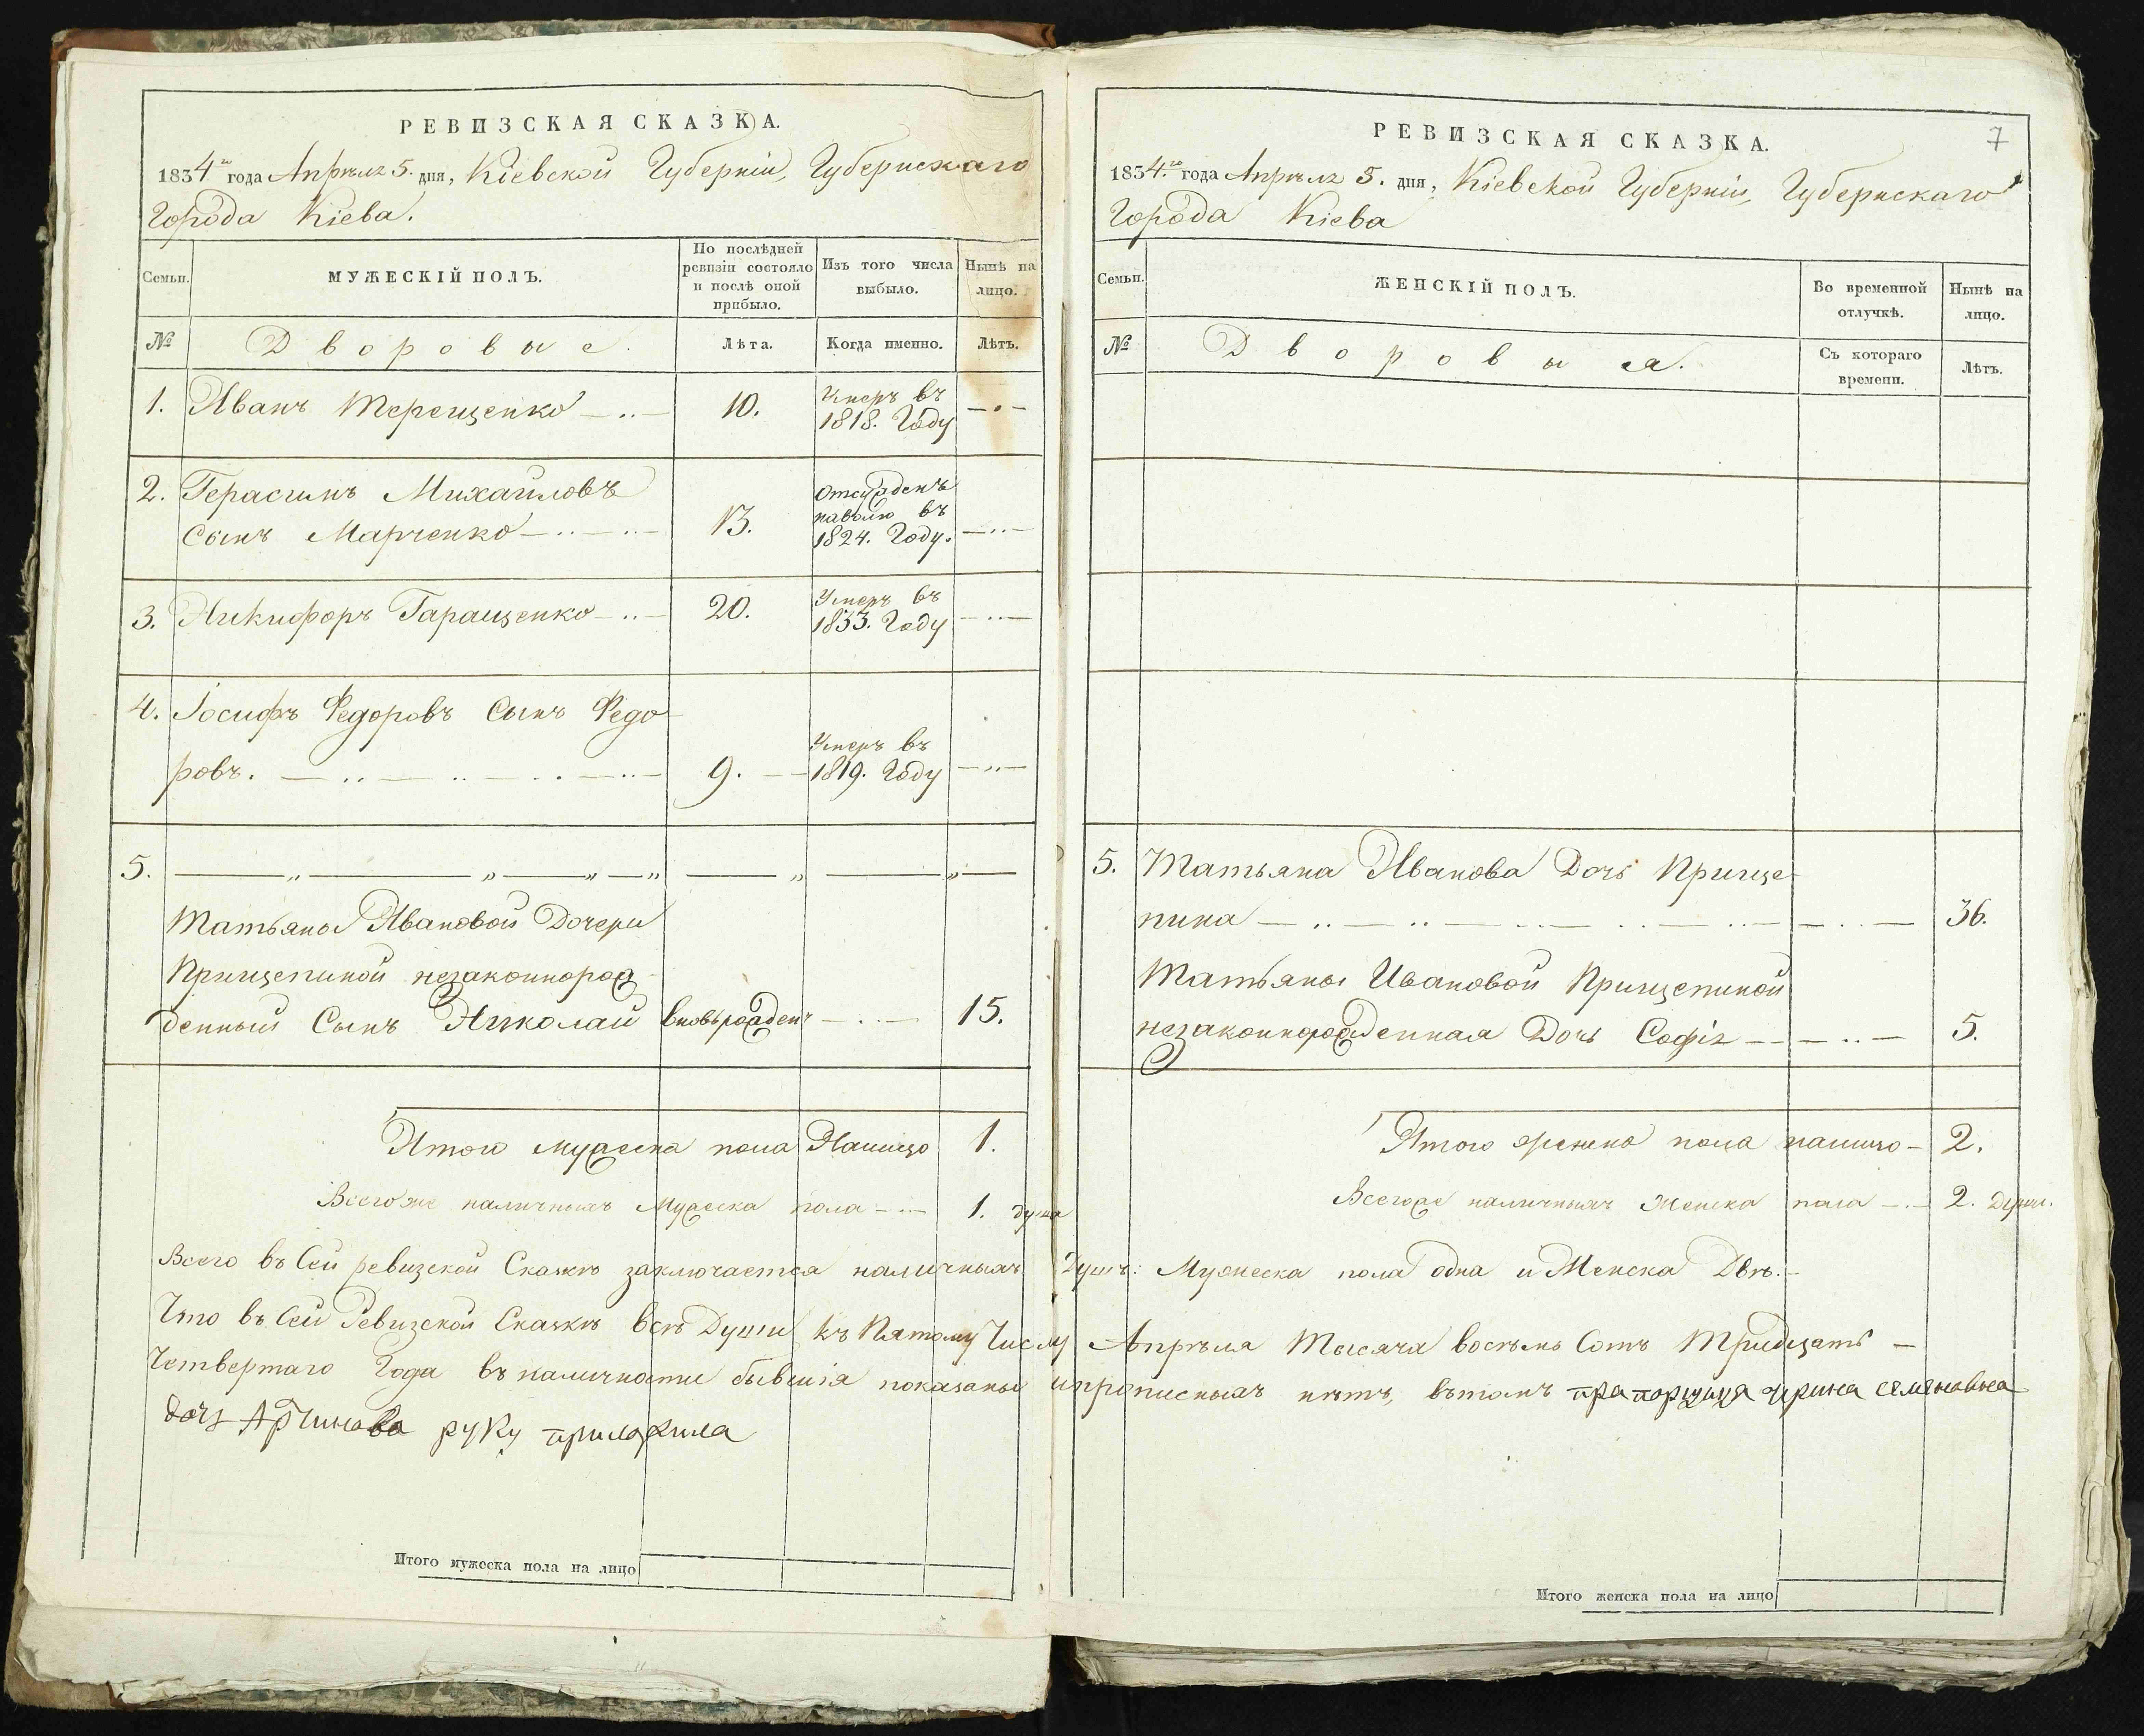 РЕВИЗСКАЯ СКАЗКА.
1834го года Апрѣля 5. дня, Кіевской Губерніи, Губернскаго
Города Кіева.
Семьи.
МУЖЕСКІЙ ПОЛЪ.
По послѣдней ревизіи состояло и послѣ оной прибыло.
Изъ того числа выбыло.
Нынѣ на лицо.
№
Дворовые.
Лѣта.
Когда именно.
Лѣтъ.
1. Иванъ Терещенко 10. Умеръ въ
1818. Году
2. Герасимъ Михайловъ
сынъ Марченко 13. Отсужденъ
наволю въ
1824. Году.
3. Никифоръ Гаращенко 20. Умеръ въ
1833. Году
4. Іосифъ Федоровъ Сынъ Федо
ровъ. 9. Умеръ въ
1819. Году
5.
Татьяны Ивановой Дочери
Прищепиной незаконнорож
денный Сынъ Николай вновьрожденъ 15.
Итого мужеска пола Налицо 1.
Всегоже наличныхъ Мужеска пола 1. душа
РЕВИЗСКАЯ СКАЗКА.
7
1834го года Апрѣля 5. дня, Кіевской Губерніи, Губернскаго
Города Кіева
Семьи.
ЖЕНСКІЙ ПОЛЪ.
Во временной отлучкѣ.
Нынѣ на лицо.
№
Дворовыя.
Съ котораго времени.
Лѣтъ.
5. Татьяна Иванова Дочь Прище
пина 36.
Татьяны Ивановой Прищепиной
незаконнорожденная Дочь Софія 5.
Итого женска пола налицо 2.
Всегоже наличныхъ Женска пола 2. души.
Всего въ Сей ревизской Сказкѣ заключается наличныхъ Душъ: Мужеска пола одна и Женска Двѣ.
Что въ Сей Ревизской Сказкѣ всѣ Души къ Пятому Числу Апрѣля Тысяча восѣмь Сотъ Тридцать
Четвертаго Года въ наличности бывшія показаны ипрописныхъ нѣтъ, вътомъ прапорщица ирина семеновна
дочь руку приложила
Итого мужеска пола на лицо
Итого женска пола на лицо